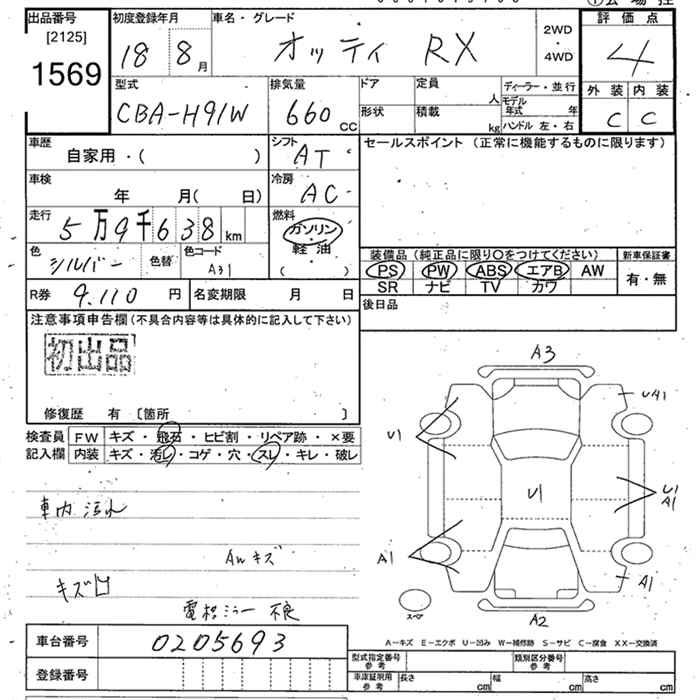 出品番号 [2125] 1569
初度登録年月 18 8月
車名・グレード オッティ RX 2WD・4WD
評価点 4
型式 CBA-H91W
排気量 660 cc
ドア 定員 人 ディーラー・並行
形状 積載 kg モデル年式 年
ハンドル 左・右
外装 内装
C C
車歴 自家用・( )
シフト AT
セールスポイント (正常に機能するものに限ります)
車検 年 月( 日)
冷房 AC
走行 5万9千638km
燃料 ガソリン・軽油 ( )
色 シルバー 色替 色コード A31
装備品 (純品に限り〇をつけてください) 新車保証書
PS PW ABS エアB AW 有・無
SR ナビ TV カワ
R券 9.110 円 名変期限 月 日
後日品
注意事項申告欄 (不具合内容等は具体的に記入して下さい)
初出品
修復歴 有 [箇所 ]
検査員 FW キズ・飛石・ヒビ割・リペア跡・×要
記入欄 内装 キズ・汚レ・コゲ・穴・スレ・キレ・破レ
A3
UA1
U1
U1
U1
A1
A1
A1
スペア
A2
車内 汚れ
AW キズ
キズ凹
電格ミラー 不良
車台番号 0205693
A-キズ E-エクボ U-凹み W-補修跡 S-サビ C-腐食 XX-交換済
登録番号
型式指定番号 参考 類別区分番号 参考
車庫証明用 参考 長さ cm 幅 cm 高さ cm